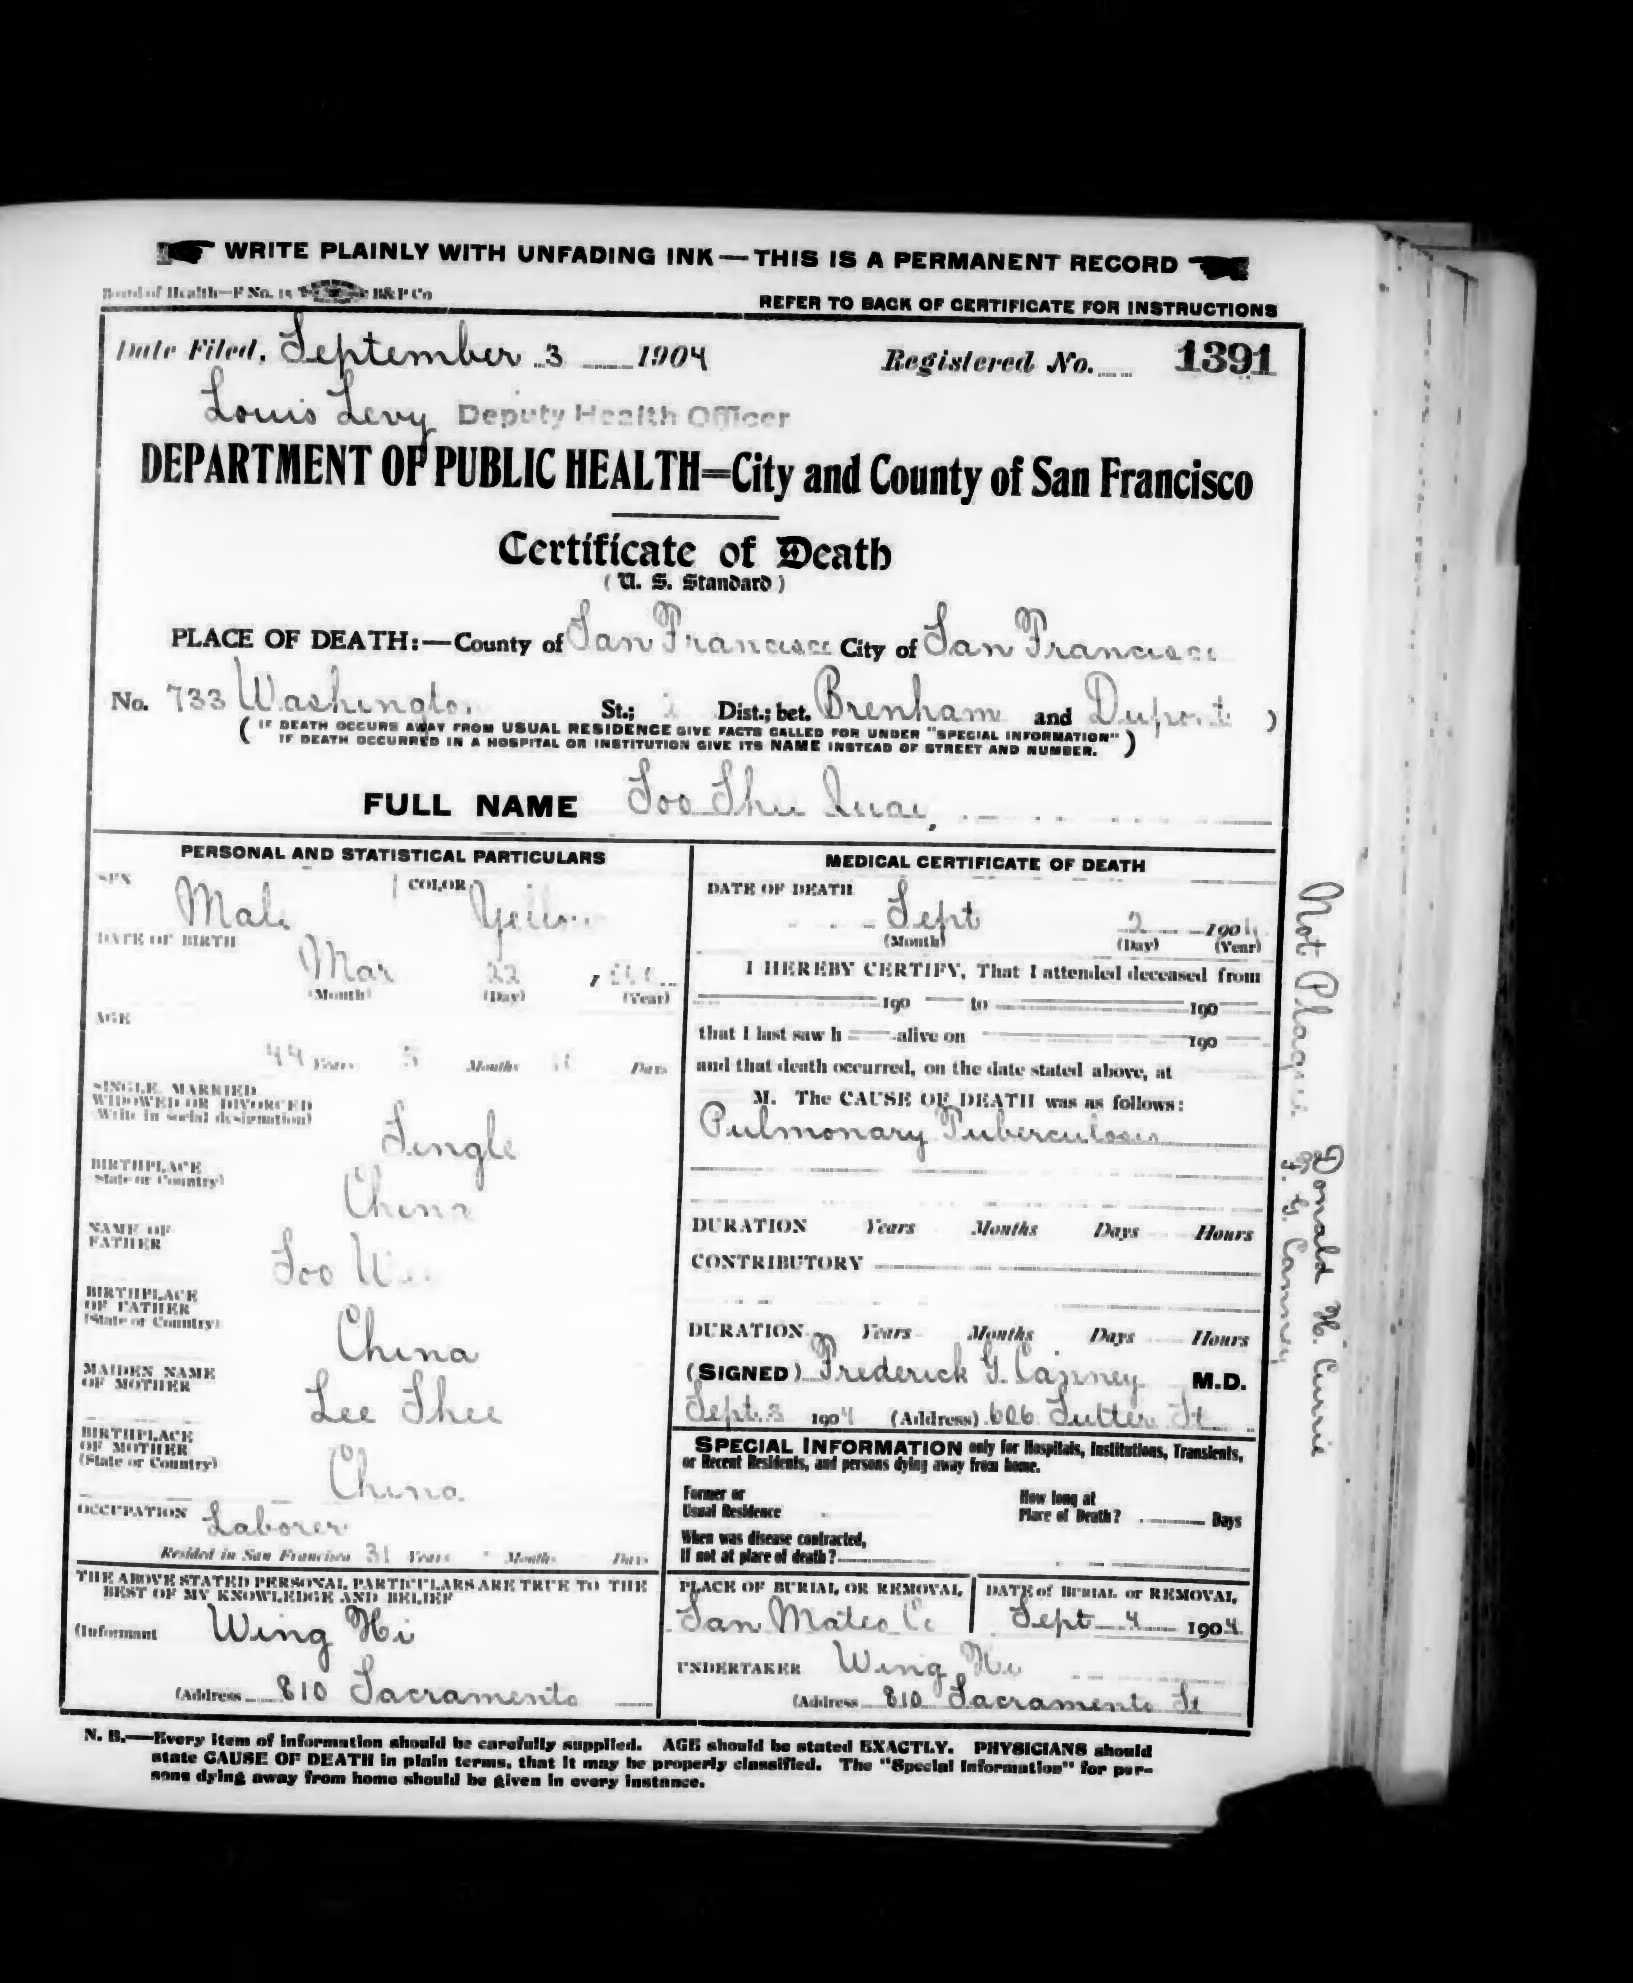 WRITE PLAINLY WITH UNFADING INK — THIS IS A PERMANENT RECORD
Board of Health—F No. 15 B&P Co
REFER TO BACK OF CERTIFICATE FOR INSTRUCTIONS
Date Filed, September 3 1904 Registered No. 1391
Louis Levy Deputy Health Officer
DEPARTMENT OF PUBLIC HEALTH=City and County of San Francisco
Certificate of Death
(U. S. Standard)
PLACE OF DEATH:—County of San Francisco City of San Francisco
No. 733 Washington St.; Dist.; bet. Brenham and Dupont )
( IF DEATH OCCURS AWAY FROM USUAL RESIDENCE GIVE FACTS CALLED FOR UNDER "SPECIAL INFORMATION"
IF DEATH OCCURRED IN A HOSPITAL OR INSTITUTION GIVE ITS NAME INSTEAD OF STREET AND NUMBER. )
FULL NAME Soo Shu Quay
PERSONAL AND STATISTICAL PARTICULARS
SEX Male COLOR Yellow
DATE OF BIRTH
Mar 22
(Month) (Day) (Year)
AGE
44 Years 5 Months Days
SINGLE, MARRIED
WIDOWED OR DIVORCED
(Write in social designation)
Single
BIRTHPLACE
(State or Country)
China
NAME OF
FATHER
Soo
BIRTHPLACE
OF FATHER
(State or Country)
China
MAIDEN NAME
OF MOTHER
Lee Shee
BIRTHPLACE
OF MOTHER
(State or Country)
China
OCCUPATION Laborer
Resided in San Francisco 31 Years Months Days
THE ABOVE STATED PERSONAL PARTICULARS ARE TRUE TO THE
BEST OF MY KNOWLEDGE AND BELIEF
(Informant Wing Hi
(Address 810 Sacramento
MEDICAL CERTIFICATE OF DEATH
DATE OF DEATH
Sept 2 1904
(Month) (Day) (Year)
I HEREBY CERTIFY, That I attended deceased from
190 to 190
that I last saw h alive on 190
and that death occurred, on the date stated above, at
M. The CAUSE OF DEATH was as follows:
Pulmonary Tuberculosis
DURATION Years Months Days Hours
CONTRIBUTORY
DURATION Years Months Days Hours
(SIGNED) Frederick G. Canney M.D.
Sept. 3 1904 (Address) 606 Sutter St
SPECIAL INFORMATION only for Hospitals, Institutions, Transients,
or Recent Residents, and persons dying away from home.
Former or
Usual Residence
How long at
Place of Death? Days
When was disease contracted,
If not at place of death?
PLACE OF BURIAL OR REMOVAL
San Mateo Co
DATE of BURIAL or REMOVAL
Sept 4 1904
UNDERTAKER Wing Hi
(Address 810 Sacramento St
N. B.—Every item of information should be carefully supplied. AGE should be stated EXACTLY. PHYSICIANS should
state CAUSE OF DEATH in plain terms, that it may be properly classified. The "Special Information" for per-
sons dying away from home should be given in every instance.
Not Plague. Donald H. Currie
F. G. Canney